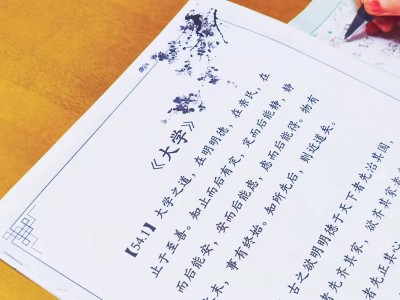 《大学》
【54.1】大学之道，在明明德，在亲民，在
止于至善。知止而后有定，定而后能静，静
而后能安，安而后能虑，虑而后能得。物有
末，事有终始。知所先后，则近道矣。
古之欲明明德于天下者先治其国，
者先齐其家，欲齐其家
者先正其心